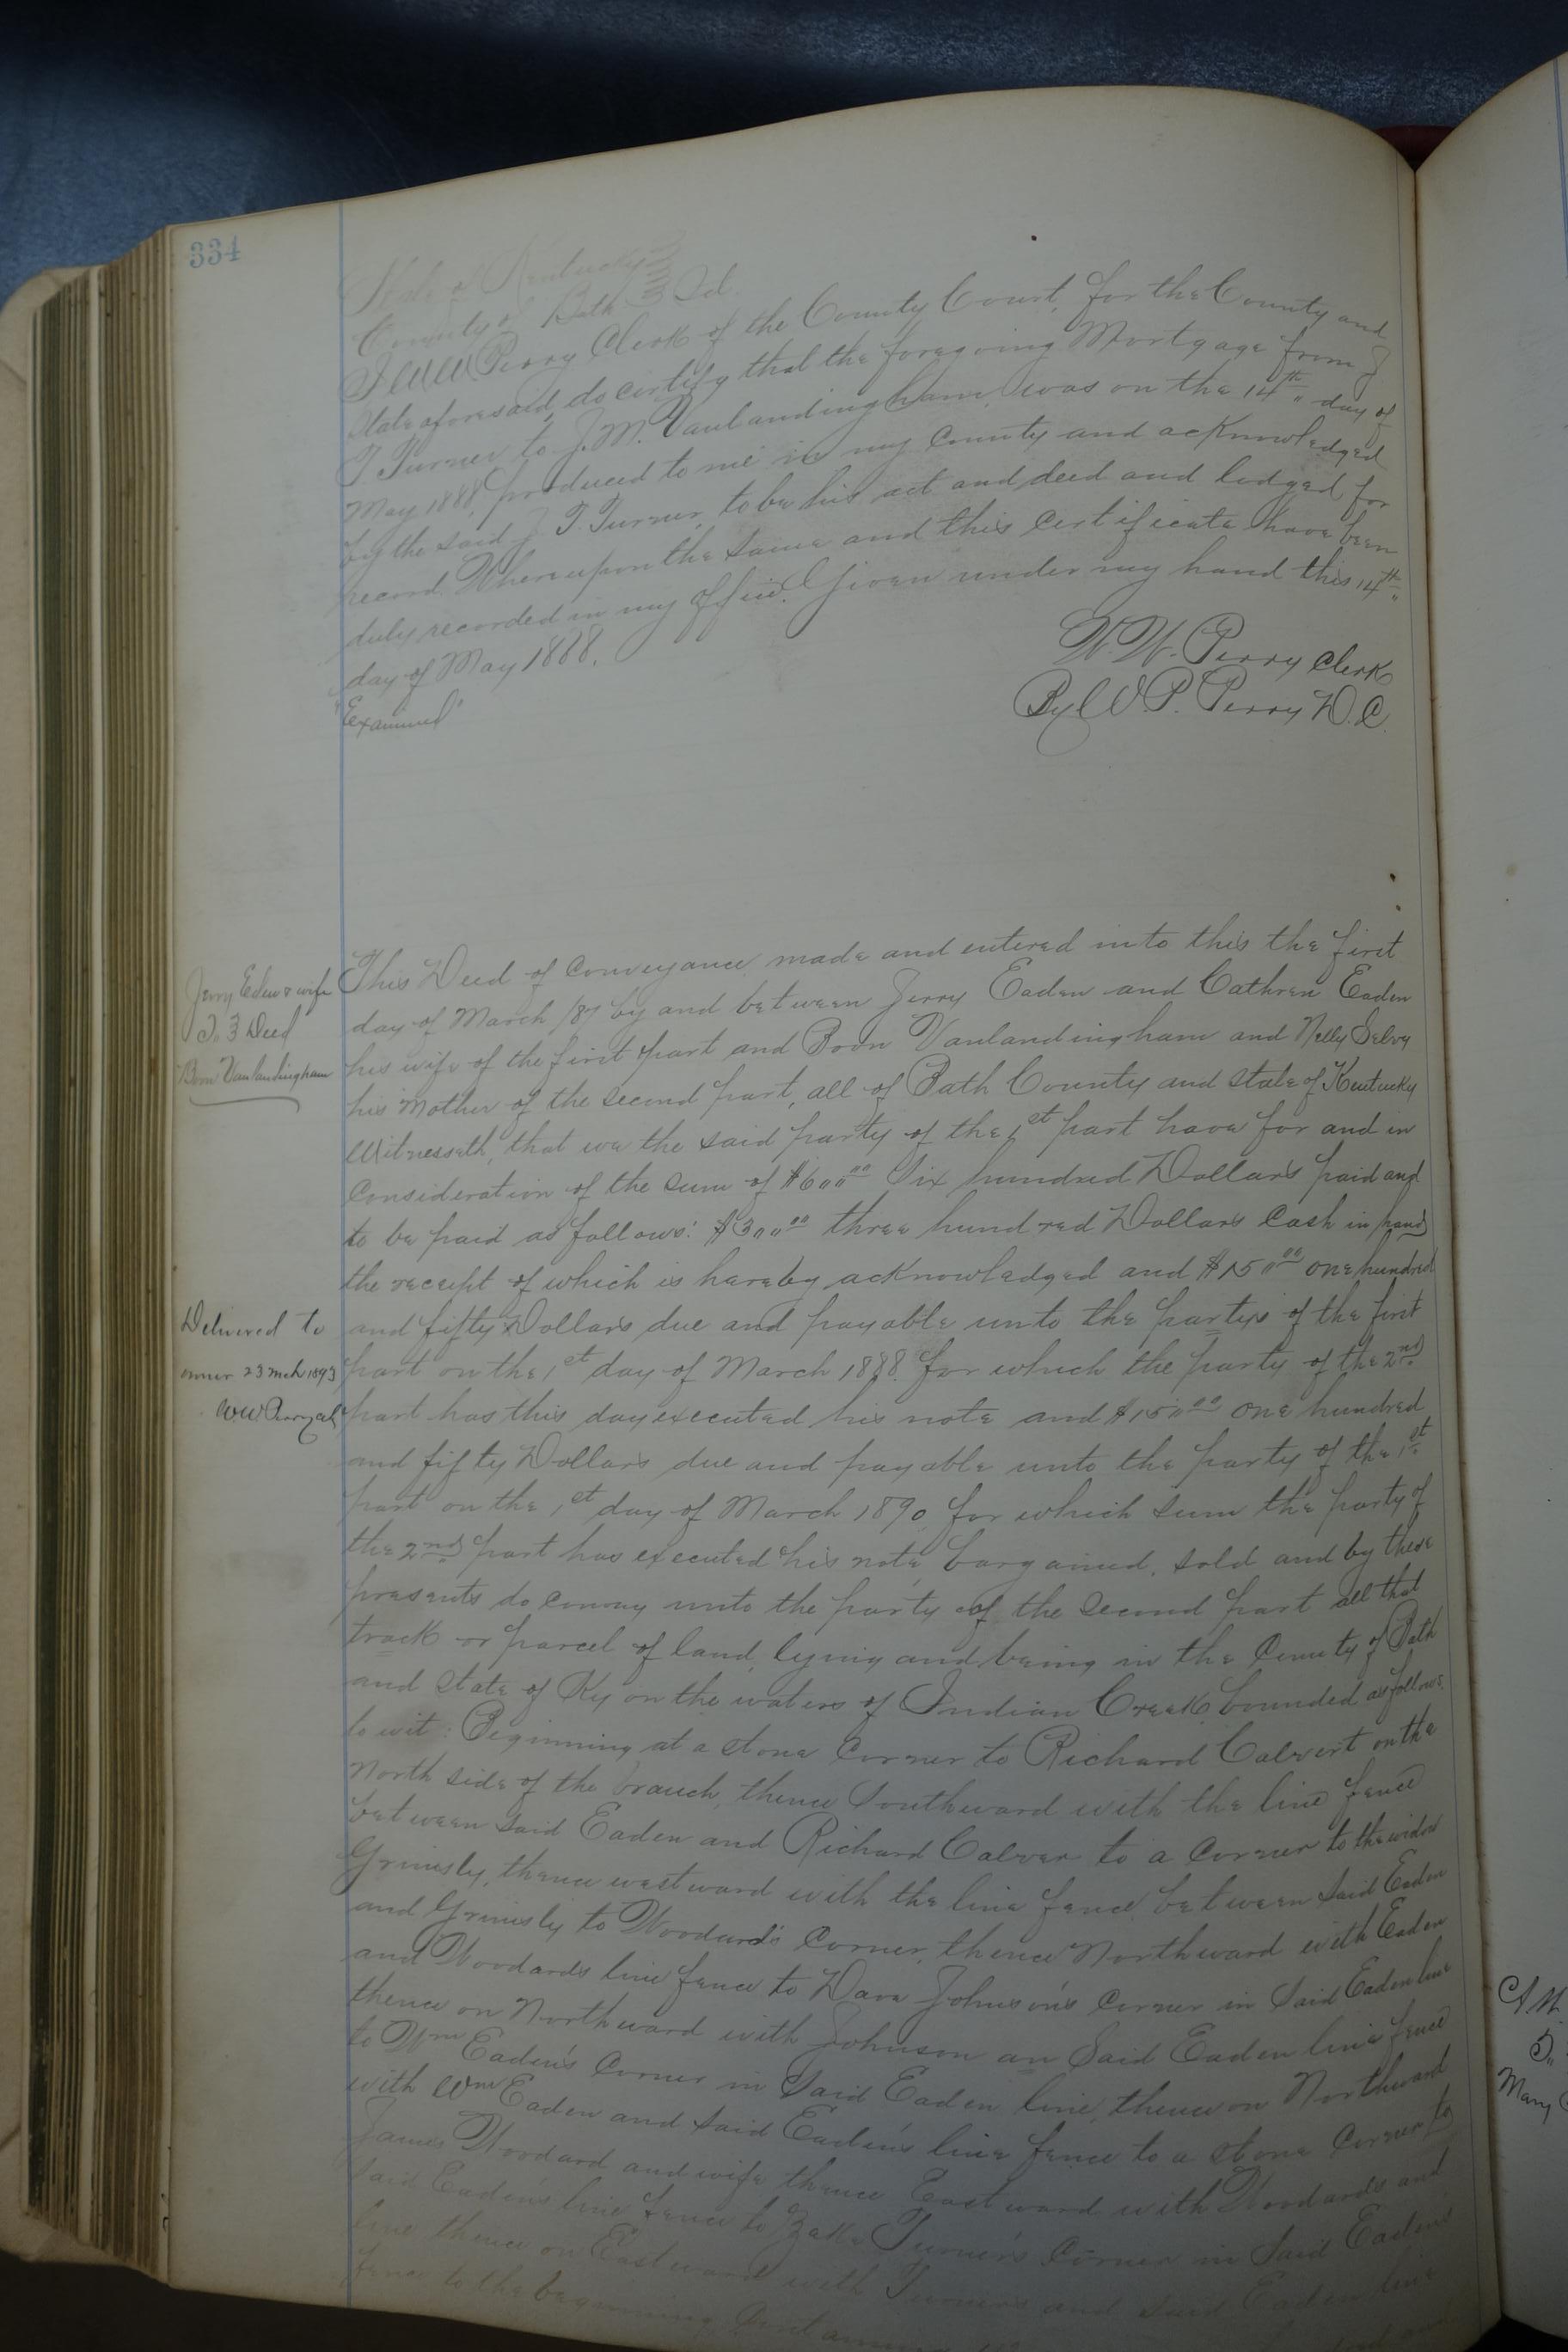 334
State of Kentucky
County of Bath Sct.
I W W Perry Clerk of the County Court, for the County and
State aforesaid, do certify that the foregoing Mortgage from J
T. Turner to J. M. Vanlandingham, was on the 14th day of
May 1888, produced to me in my County and acknowledged
by the said J. T. Turner, to be his act and deed and lodged for
record. Whereupon the same and this certificate have been
duly recorded in my office. Given under my hand this 14th
day of May 1888.
W. W. Perry Clerk
"Examined"
By W. P. Perry D. C.
Jerry Eden & wife
To } Deed
Boon Vanlandingham
This Deed of Conveyance made and entered into this the first
day of March /87 by and between Jerry Eaden and Cathren Eaden
his wife of the first part and Boon Vanlandingham and Nelly Selvy
his Mother of the second part, all of Bath County and state of Kentucky
Witnesseth, that we the said party of the 1st part have for and in
Consideration of the sum of $600.00 Six hundred Dollars paid and
to be paid as follows: $300.00 three hundred Dollars Cash in hand
the receipt of which is hereby acknowledged and $150.00 one hundred
Delivered to
owner 23 Mch 1893
WW Perry clk
and fifty Dollars due and payable unto the partys of the first
part on the 1st day of March 1888. for which the party of the 2nd
part has this day executed his note and $150.00 one hundred
and fifty Dollars due and payable unto the party of the 1st
part on the 1st day of March 1890 for which sum the party of
the 2nd part has executed his note, bargained, sold and by these
presents do convey unto the party of the second part all that
track or parcel of land, lying and being in the County of Bath
and State of Ky on the waters of Indian Creek bounded as follows.
to wit: Beginning at a stone Corner to Richard Calvert on the
North side of the branch, thence Southward with the line fence
between said Eaden and Richard Calver to a Corner to the widow
Grimsly, thence westward with the line fence between said Eaden
and Grimsly to Woodard's Corner, thence Northward with Eaden
and Woodards line fence to Dave Johnson's Corner in Said Eaden line
thence on Northward with Johnson an Said Eaden line fence
to Wm Eaden's Corner in Said Eaden line, thence on Northward
with Wm Eaden and said Eaden's line fence to a stone Corner to
James Woodard and wife thence Eastward with Woodards and
said Eadens line fence to Zake Turner's Corner in Said Eadens
line thence on Eastward with Turners and said Eaden line
fence to the beginning Containing